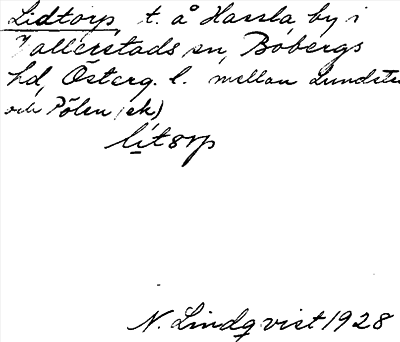 Lidtorp, t. å Hassla by i
Vallerstads sn, Bobergs
hd, Österg. l. mellan Lundste
och Pölen (ek)
litorp
N. Lindqvist 1928